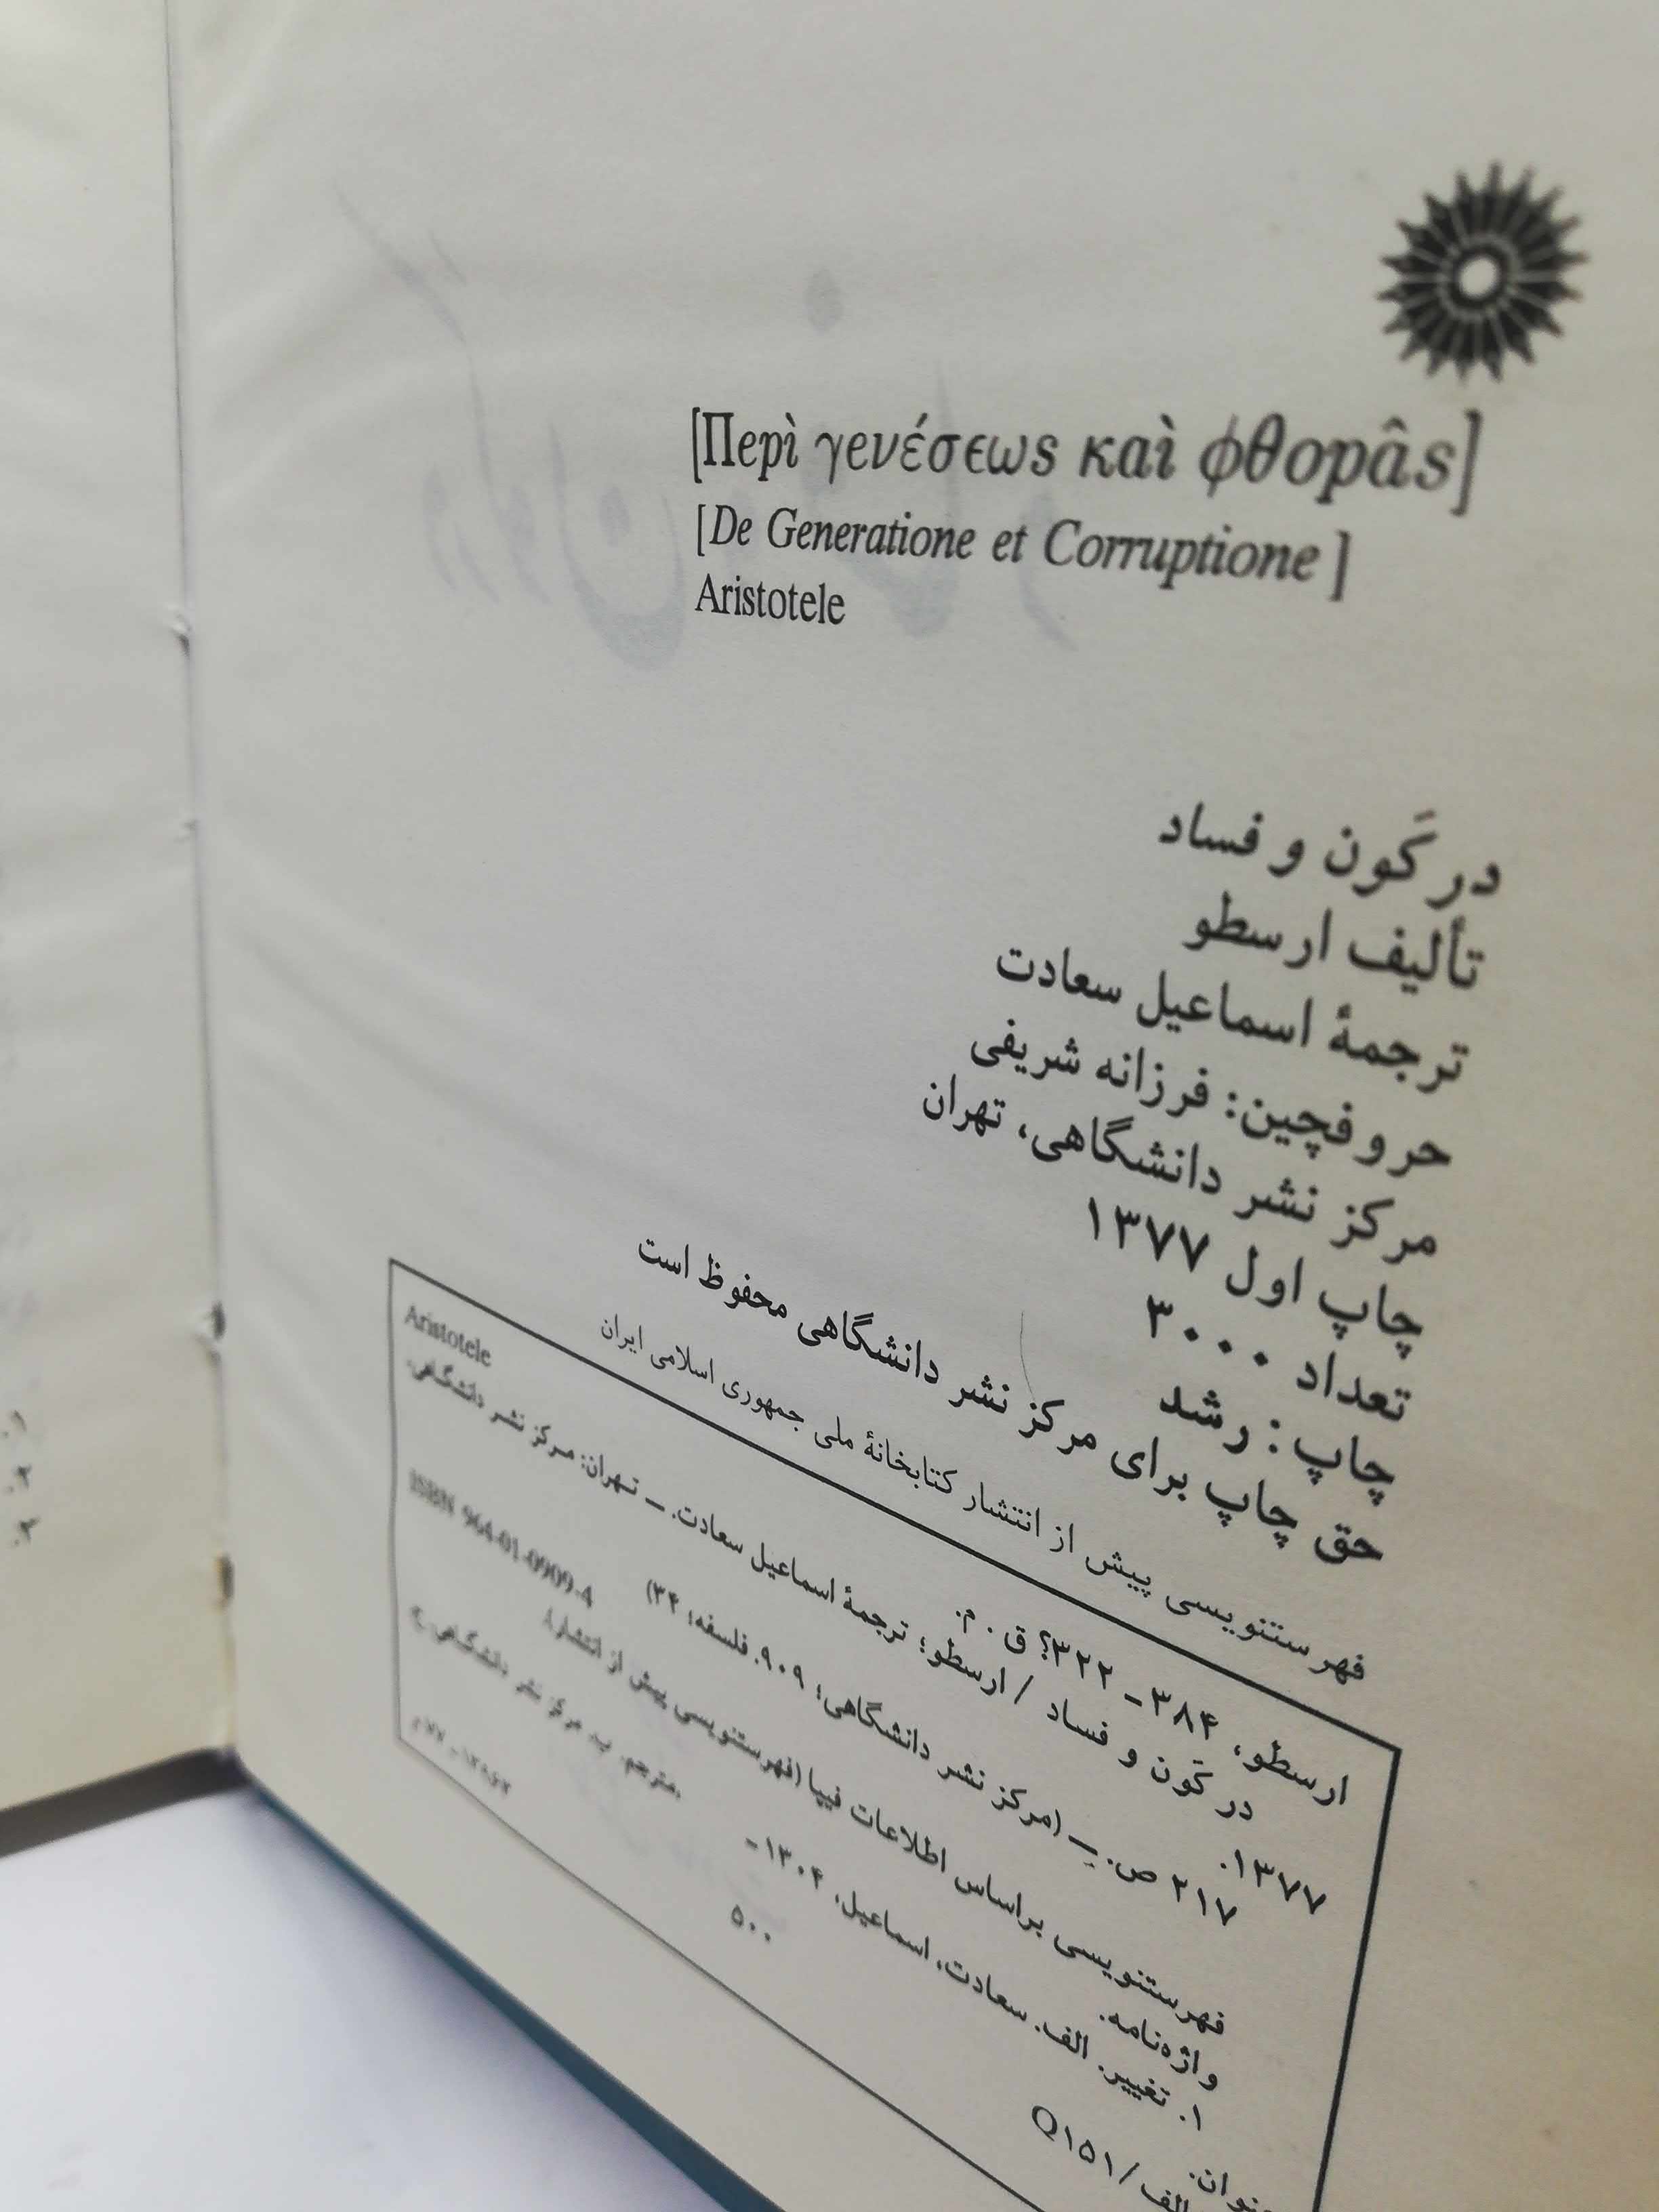 [Περὶ γενέσεως καὶ φθορᾶς]
[De Generatione et Corruptione]
Aristotele
در کَون و فساد
تألیف ارسطو
ترجمهٔ اسماعیل سعادت
حروفچین: فرزانه شریفی
مرکز نشر دانشگاهی، تهران
چاپ اول ۱۳۷۷
تعداد ۳۰۰۰
چاپ: رشد
حق چاپ برای مرکز نشر دانشگاهی محفوظ است
فهرستنویسی پیش از انتشار کتابخانهٔ ملی جمهوری اسلامی ایران
ارسطو، ۳۸۴ - ۳۲۲؟ ق . م. Aristotele
در کَون و فساد / ارسطو؛ ترجمهٔ اسماعیل سعادت. ــ تهران: مرکز نشر دانشگاهی،
۱۳۷۷.
۲۱۷ ص. ــ (مرکز نشر دانشگاهی؛ ۹۰۹. فلسفه؛ ۳۴) ISBN 964-01-0909-4
فهرستنویسی براساس اطلاعات فیپا (فهرستنویسی پیش از انتشار).
واژه‌نامه.
۱. تغییر. الف. سعادت، اسماعیل، ۱۳۰۴ - ، مترجم. ب. مرکز نشر دانشگاهی. ج.
عنوان.
۵۰۰ الف/Q۱۵۱